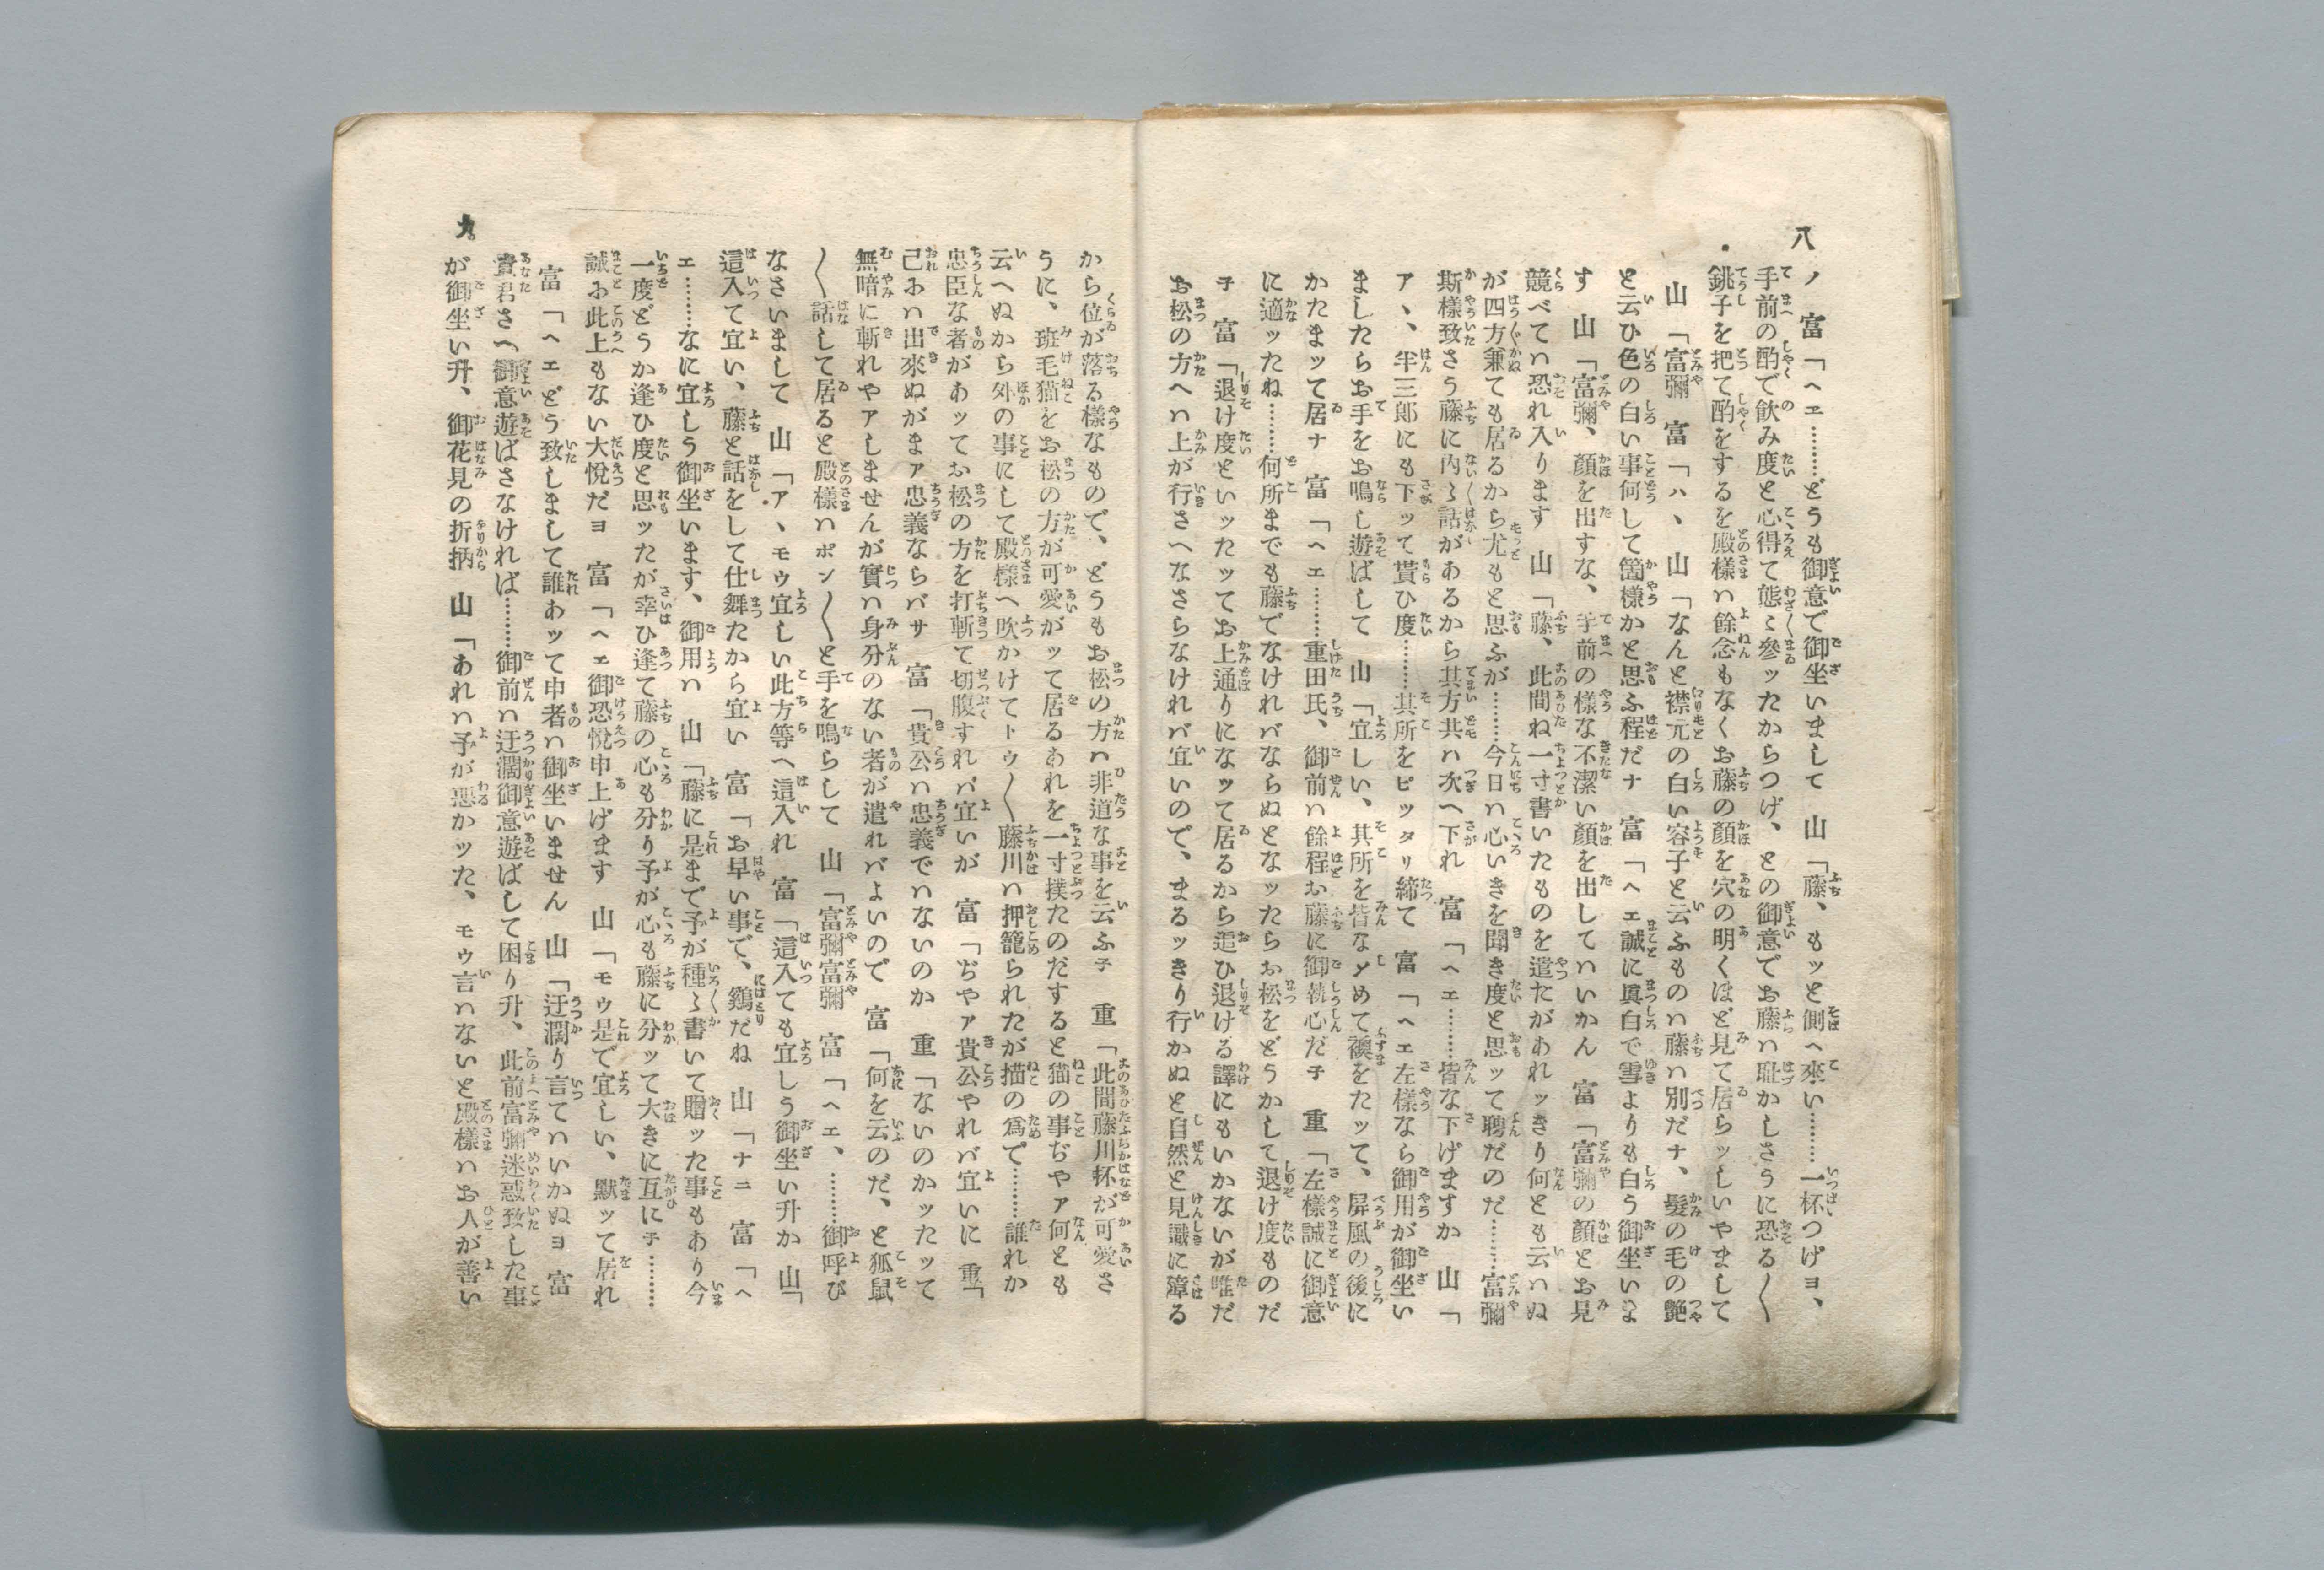 八
ノ 富「ヘエ………どうも御意で御坐いまして 山「藤、もッと側へ來い………一杯つげヨ、
手前の酌で飲み度と心得て態〻參ッたからつげ、との御意でお藤ハ耻かしさうに恐る〱
銚子を把て酌をするを殿樣ハ餘念もなくお藤の顏を穴の明くほど見て居らッしいやまして
山「富彌 富「ハヽ 山「なんと襟元の白い容子と云ふものハ藤ハ別だナ、髮の毛の艶
と云ひ色の白い事何して箇樣かと思ふ程だナ 富「ヘエ誠に眞白で雪よりも白う御坐いま
す 山「富彌、顏を出すな、手前の樣な不潔い顏を出していハいかん 富「富彌の顏とお見
競べてハ恐れ入ります 山「藤、此間ね一寸書いたものを遣たがあれッきり何とも云ハぬ
が四方兼ても居るから尤もと思ふが………今日ハ心いきを聞き度と思ッて聘だのだ………富彌
斯樣致さう藤に内〻話があるから其方共ハ次へ下れ 富「ヘエ………皆な下げますか 山「
アヽ、半三郎にも下ッて貰ひ度………其所をピッタリ締て 富「ヘエ左樣なら御用が御坐い
ましたらお手をお鳴し遊ばして 山「宜しい、其所を皆なしめて襖をたッて、屏風の後に
かたまッて居ナ 富「ヘエ………重田氏、御前ハ餘程お藤に御執心だ子 重「左樣誠に御意
に適ッたね………何所までも藤でなけれバならぬとなッたらお松をどうかして退け度ものだ
子 富「退け度といッたッてお上通りになッて居るから追ひ退ける譯にもいかないが唯だ
お松の方へハ上が行さへなさらなけれバ宜いので、まるッきり行かぬと自然と見識に障る
九
から位が落る樣なもので、どうもお松の方ハ非道な事を云ふ子 重「此間藤川抔が可愛さ
うに、斑毛猫をお松の方が可愛がッて居るあれを一寸撲たのだすると猫の事ぢやア何とも
云へぬから外の事にして殿樣へ吹かけてトウ〱藤川ハ押籠られたが描の爲で………誰れか
忠臣な者があッてお松の方を打斬て切腹すれバ宜いが 富「ぢやア貴公やれバ宜いに 重「
己れハ出來ぬがまア忠義ならバサ 富「貴公ハ忠義でハないのか 重「ないのかッたッて
無暗に斬れやアしませんが實ハ身分のない者が遣れバよいので 富「何を云のだ、と狐鼠
〱話して居ると殿樣ハポン〱と手を鳴らして 山「富彌富彌 富「ヘエ、………御呼び
なさいまして 山「アヽモウ宜しい此方等へ這入れ 富「這入ても宜しう御坐い升か 山「
這入て宜い、藤と話をして仕舞たから宜い 富「お早い事で、鷄だね 山「ナニ 富「ヘ
エ………なに宜しう御坐います、御用ハ 山「藤に是まで予が種〻書いて贈ッた事もあり今
一度どうか逢ひ度と思ッたが幸ひ逢て藤の心も分り予が心も藤に分ッて大きに互に子………
誠お此上もない大悅だヨ 富「ヘエ御恐悅申上げます 山「モウ是で宜しい、默ッて居れ
富「ヘエどう致しまして誰あッて申者ハ御坐いません 山「迂濶り言てハいかぬヨ 富
貴君さへ御意遊ばさなければ………御前ハ迂濶御意遊ばして困り升、此前富彌迷惑致した事
が御坐い升、御花見の折柄 山「あれハ予が惡かッた、モウ言ハないと殿樣ハお人が善い